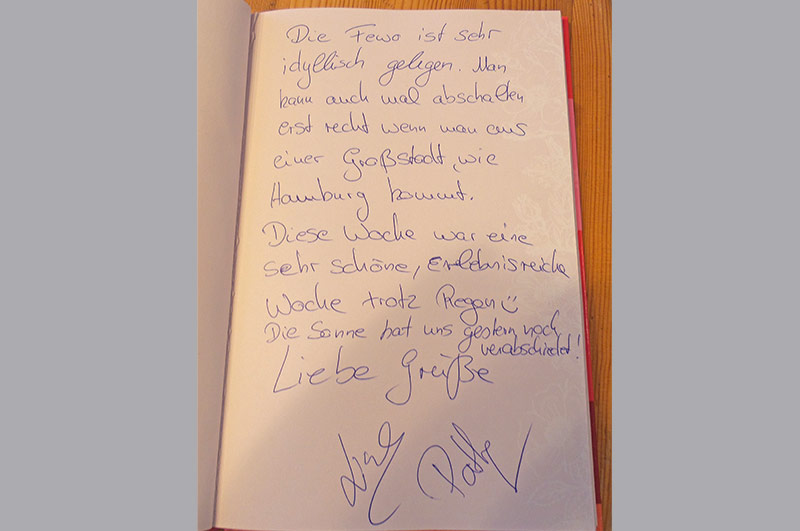 Die Fewo ist sehr
idyllisch gelegen. Man
kann auch mal abschalten
erst recht wenn man aus
einer Großstadt, wie
Hamburg kommt.
Diese Woche war eine
sehr schöne, erlebnisreiche
Woche trotz Regen
Die Sonne hat uns gestern noch
verabschiedet!
Liebe Grüße